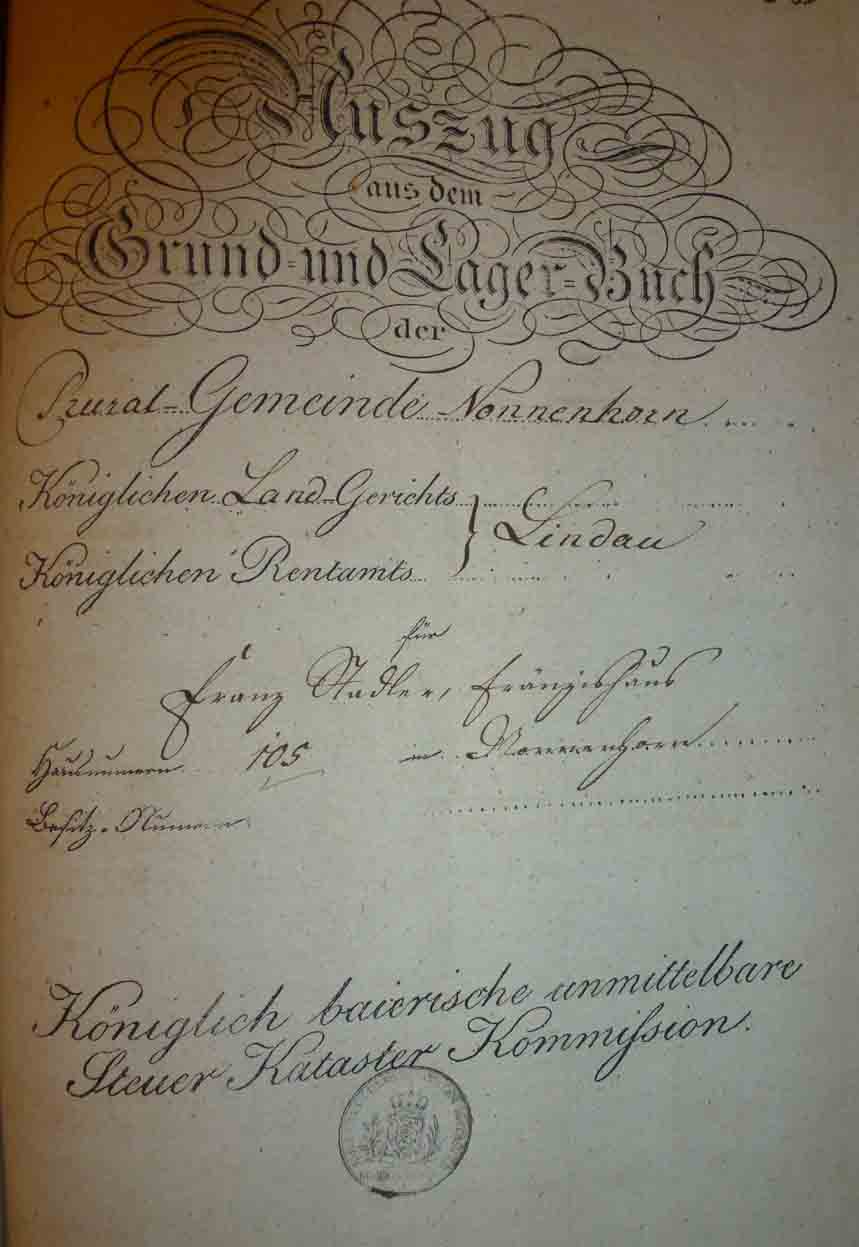 Auszug
aus dem
Grund- und Lager-Buch
der
Rural-Gemeinde Nonnenhorn
Königlichen Land-Gerichts
Lindau
Königlichen Rentamts
für
Franz Stadler, Fränzishaus
Hausnummern 105 in Nonnenhorn
Besitz-Numern
Königlich baierische unmittelbare
Steuer Kataster Kommission.